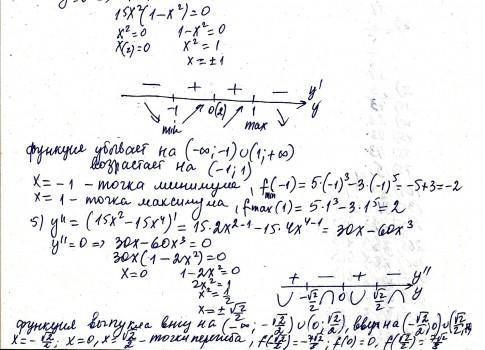 15x²(1-x²)=0
x²=0 1-x²=0
x(2)=0 x²=1
x=±1
- + + - y'
-1 0(2) 1 y
min max
функция убывает на (-∞;-1)∪(1;+∞)
возрастает на (-1;1)
x=-1 - точка минимума, fmin(-1)=5·(-1)³-3·(-1)⁵=-5+3=-2
x=1 - точка максимума, fmax(1)=5·1³-3·1⁵=2
5) y''=(15x²-15x⁴)'=15·2x²⁻¹-15·4x⁴⁻¹=30x-60x³
y''=0 => 30x-60x³=0
30x(1-2x²)=0
x=0 1-2x²=0
2x²=1
x²=1/2
x=±√2/2
+ - + - y''
∪ -√2/2 ∩ 0 ∪ √2/2 ∩ y
функция выпукла вниз на (-∞;-√2/2)∪(0;√2/2), вверх на (-√2/2;0)∪(√2/2;
x=-√2/2; x=0, x=√2/2 - точки перегиба, f(-√2/2)=-7√2/8; f(0)=0, f(√2/2)=7√2/8